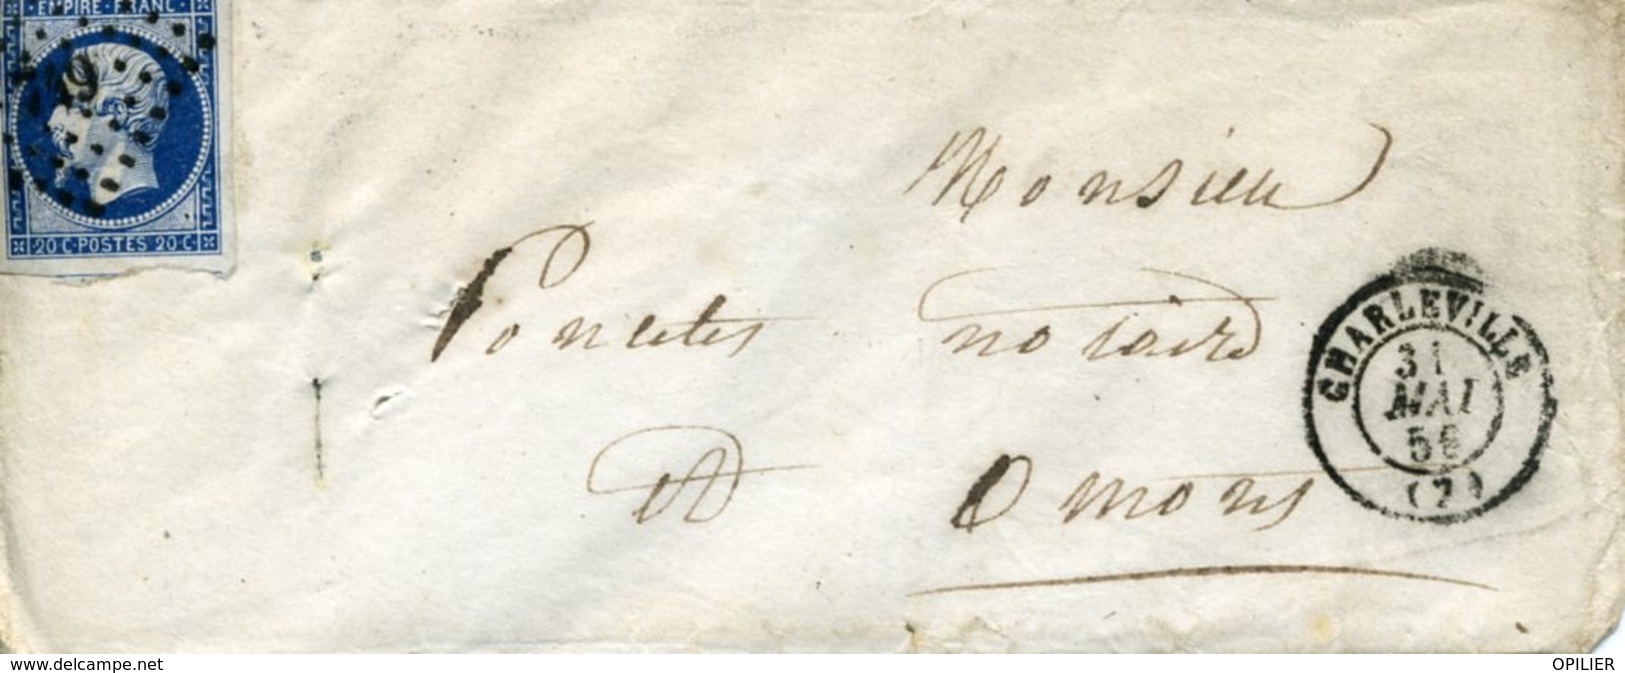 EMPIRE · FRANC ·
20 C · POSTES 20 C
Monsieur
Poncelet notaire
à Omons
CHARLEVILLE
31
MAI
56
(7)
www.delcampe.net
OPILIER